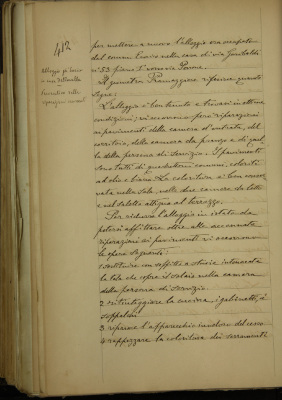 412
Alloggio già Curio
per mettere a nuovo l'alloggio ora occupato
dal comm. Curio nella casa di via Garibaldi
n° 53 piano 1° verso via
Il ministro riferisce quanto
segue:
L'alloggio è ben tenuto e trovasi in ottime
condizioni; vi occorrono però riparazioni
ai pavimenti della camera d'entrata, del
corridoio, della camera da pranzo e di quel
la della persona di servizio. I pavimenti
sono tutti di quadrettoni comuni, coloriti
ad olio e La coloritura è ben conser
vata nella sala, nelle due camere da letto
e nel salotto attiguo al terrazzo.
Per ridurre l'alloggio in istato da
potersi affittare oltre alle accennate
riparazioni ai pavimenti vi occorrono
le opere seguenti:
costituire un soffitto a stuoia intonacata
la tela che copre il solaio nella camera
della persona di servizio.
2 ritinteggiare la cucina, i gabinetti, i
soppalchi
3 riparare l'apparecchio inodoro del cesso
4 rappezzare la coloritura dei serramenti